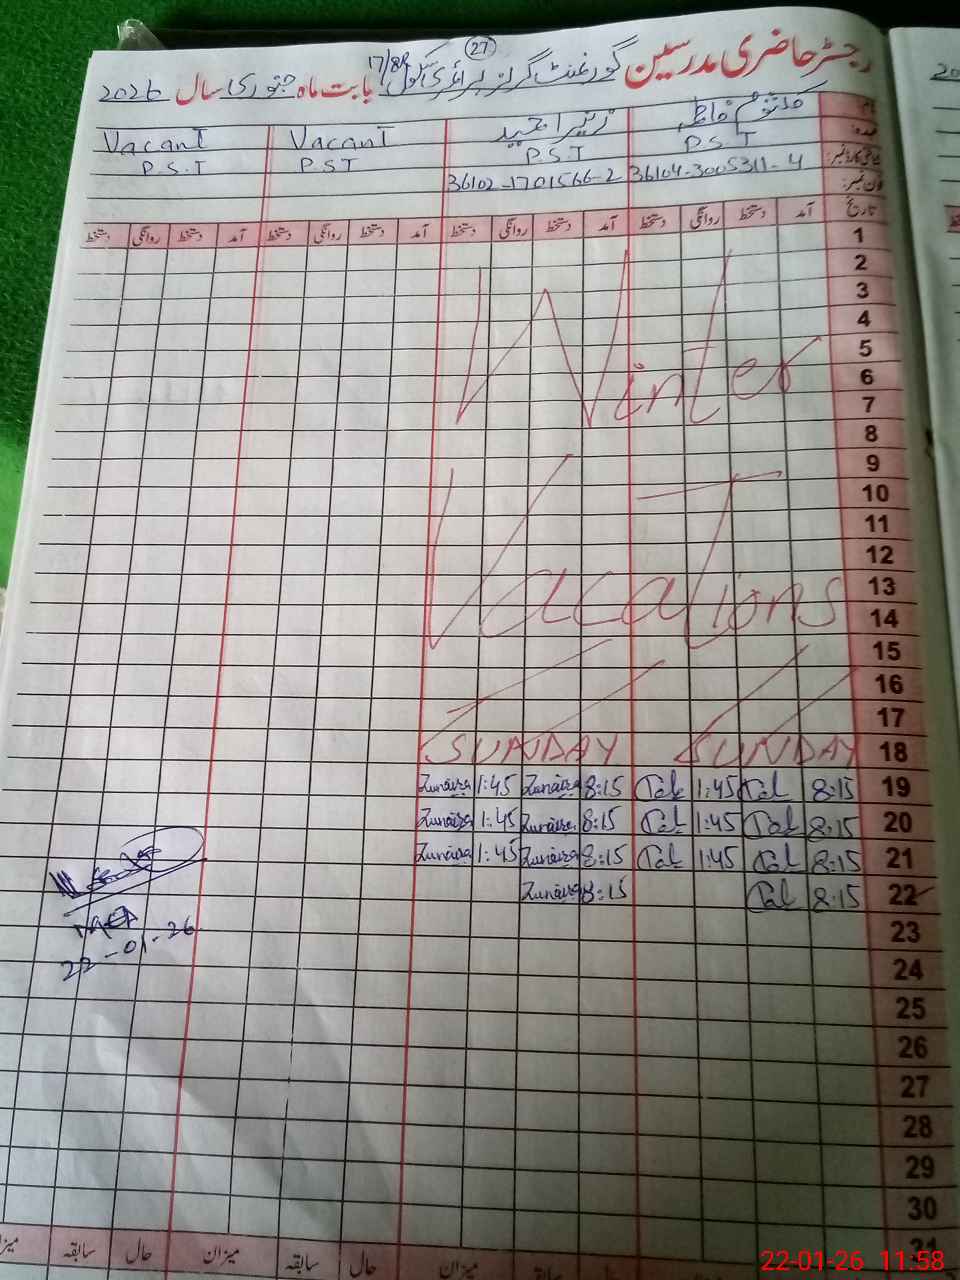 27
رجسٹر حاضری مدرسین گورنمنٹ گرلز پرائمری سکول 17/8R بابت ماہ جنوری سال 2026
نام: کلثوم فاطمہ Vacant Vacant
عہدہ: P.S.T P.S.T P.S.T P.S.T
شناختی کارڈ نمبر: 36104-3005311-4 36102-1701566-2
فون نمبر:
تاریخ آمد دستخط روانگی دستخط آمد دستخط روانگی دستخط آمد دستخط روانگی دستخط آمد دستخط روانگی دستخط
1
2
3
4
5
6
7
Winter
8
9
10
11
12
13
14
Vacations
15
16
17
18 SUNDAY SUNDAY
19 8:15 1:45 8:15 Zunaira 1:45 Zunaira
20 8:15 1:45 8:15 Zunaira 1:45 Zunaira
21 8:15 1:45 8:15 Zunaira 1:45 Zunaira
22 8:15 8:15 Zunaira
22-01-26
23
24
25
26
27
28
29
30
31
میزان سابقہ حال میزان سابقہ حال میزان
22-01-26 11:58